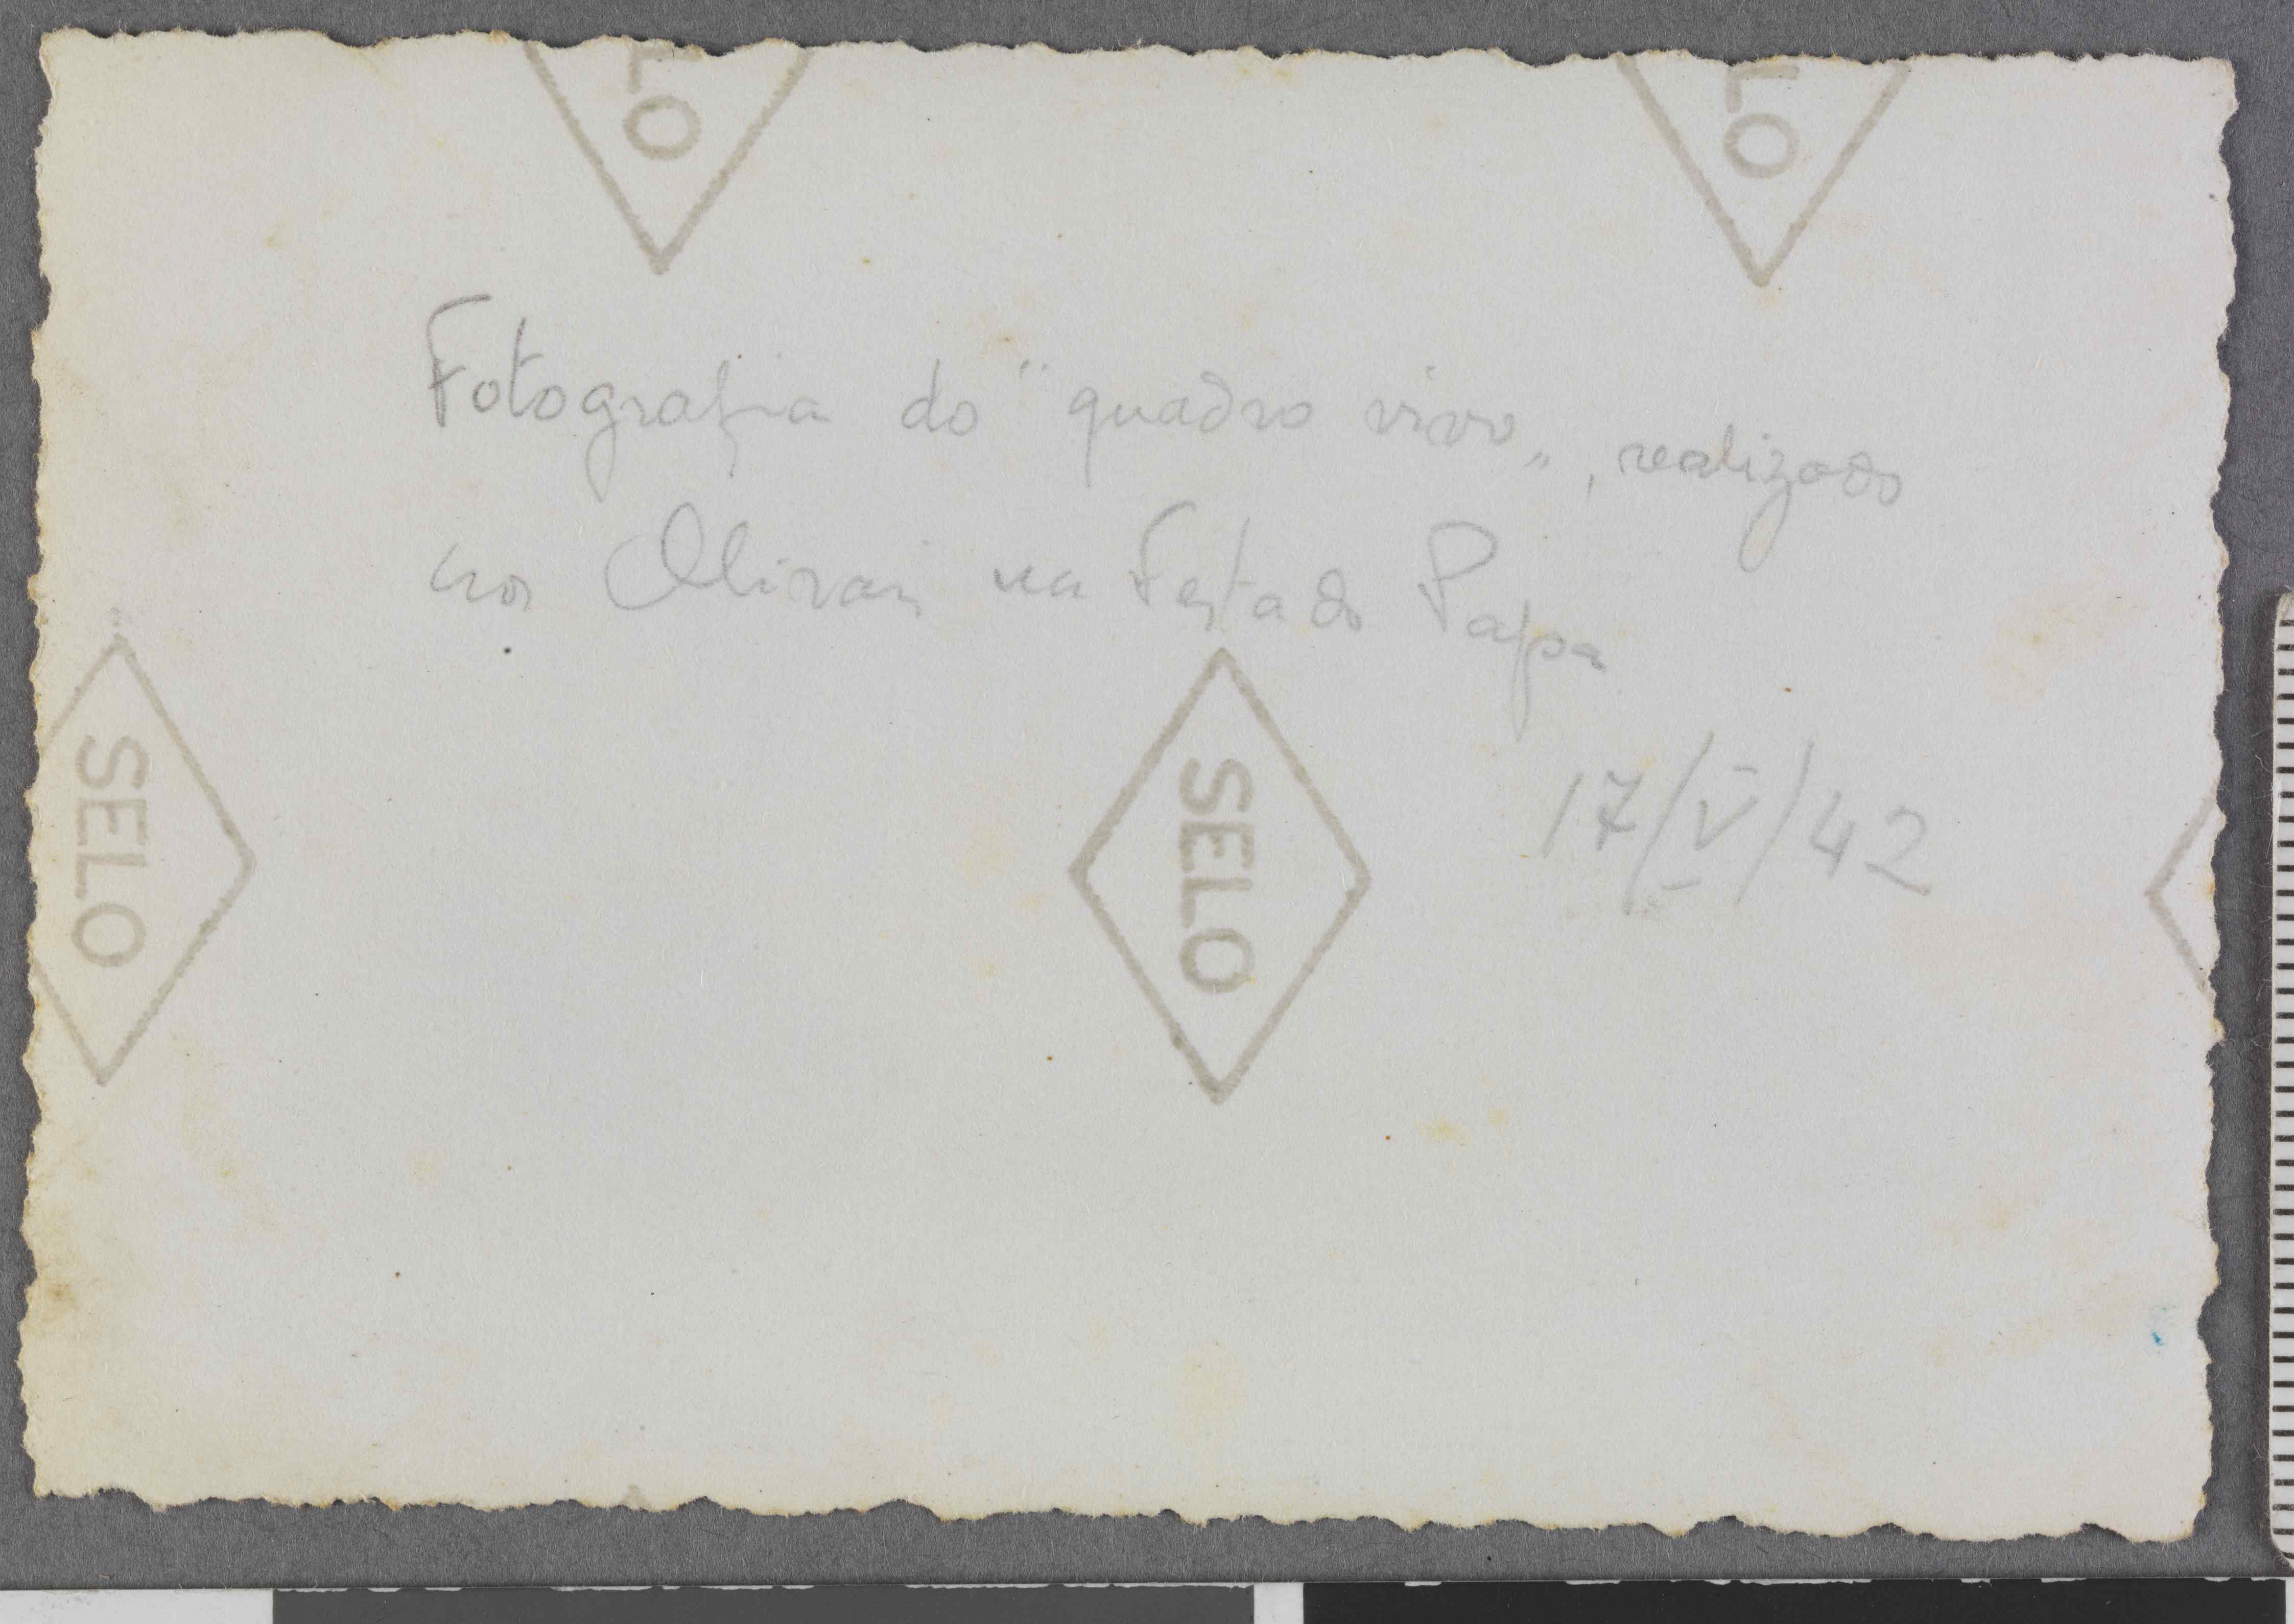 LO
LO
Fotografia do "quadro vivo", realizado
nos Olivais na Festa do Papa
SELO
SELO
17/V/42